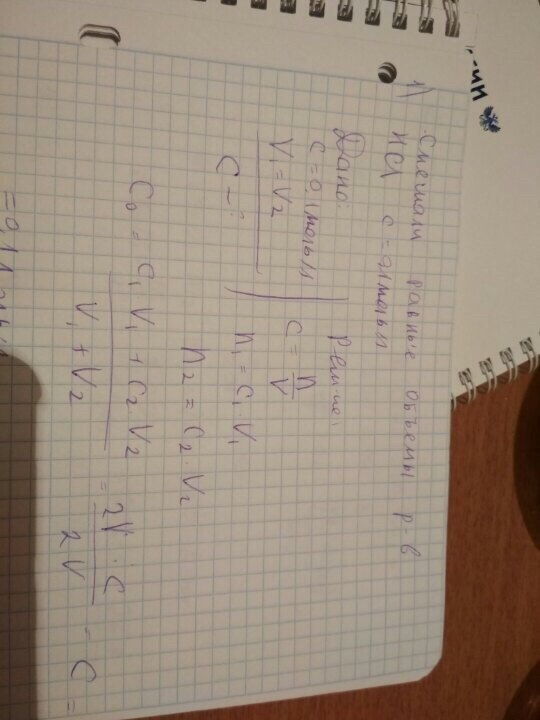 1) Смешали равные объемы р-в
HCl с = 0,1 моль/л
Дано:
С = 0,1 моль/л
V₁ = V₂
С - ?
Решение:
C = n/V
n₁ = C₁ · V₁
n₂ = C₂ · V₂
C₀ = (C₁V₁ + C₂·V₂)/(V₁ + V₂) = (2V · C)/(2V) = C =
= 0,1 моль/л